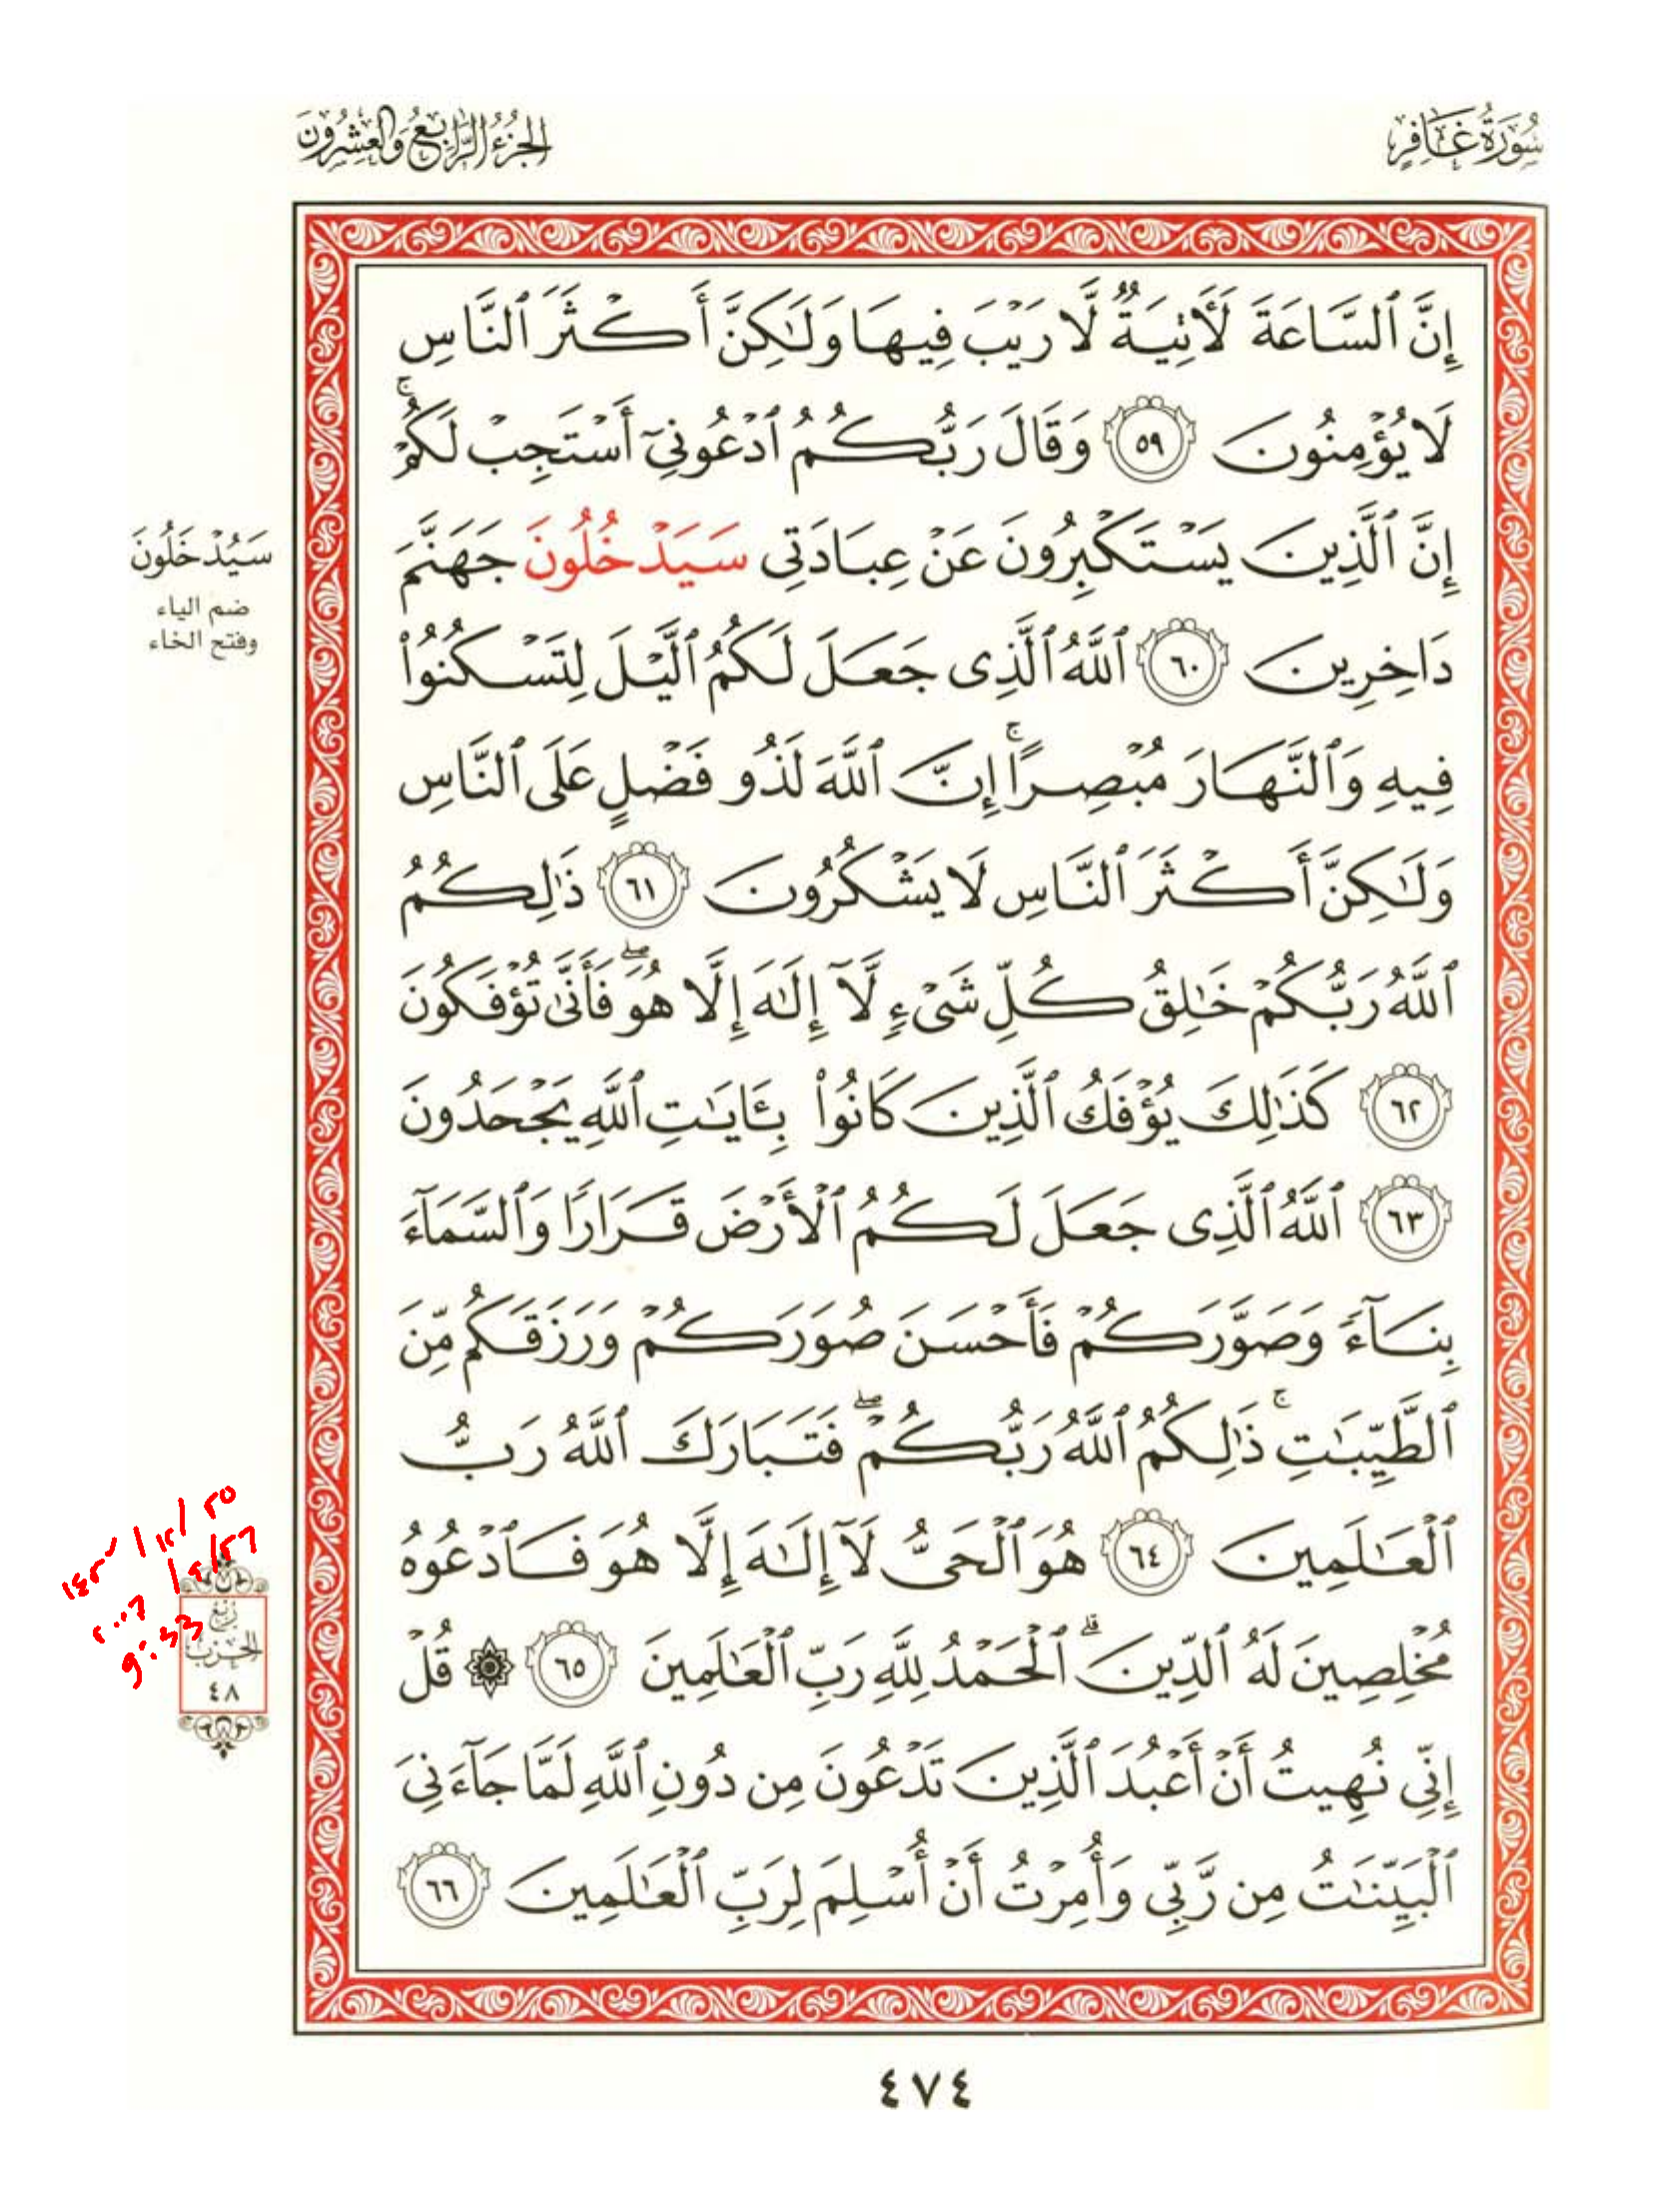 سُورَةُ غَافِرٍ
الجُزْءُ الرَّابِعُ وَالعِشْرُونَ
إِنَّ ٱلسَّاعَةَ لَأٓتِيَةٌ لَّا رَيْبَ فِيهَا وَلَٰكِنَّ أَكْثَرَ ٱلنَّاسِ
لَا يُؤْمِنُونَ ٥٩ وَقَالَ رَبُّكُمُ ٱدْعُونِىٓ أَسْتَجِبْ لَكُمْ ۚ
إِنَّ ٱلَّذِينَ يَسْتَكْبِرُونَ عَنْ عِبَادَتِى سَيَدْخُلُونَ جَهَنَّمَ
سَيُدْخَلُونَ
ضم الياء
وفتح الخاء
دَاخِرِينَ ٦٠ ٱللَّهُ ٱلَّذِى جَعَلَ لَكُمُ ٱلَّيْلَ لِتَسْكُنُوا۟
فِيهِ وَٱلنَّهَارَ مُبْصِرًا ۚ إِنَّ ٱللَّهَ لَذُو فَضْلٍ عَلَى ٱلنَّاسِ
وَلَٰكِنَّ أَكْثَرَ ٱلنَّاسِ لَا يَشْكُرُونَ ٦١ ذَٰلِكُمُ
ٱللَّهُ رَبُّكُمْ خَٰلِقُ كُلِّ شَىْءٍ لَّآ إِلَٰهَ إِلَّا هُوَ ۖ فَأَنَّىٰ تُؤْفَكُونَ
٦٢ كَذَٰلِكَ يُؤْفَكُ ٱلَّذِينَ كَانُوا۟ بِـَٔايَٰتِ ٱللَّهِ يَجْحَدُونَ
٦٣ ٱللَّهُ ٱلَّذِى جَعَلَ لَكُمُ ٱلْأَرْضَ قَرَارًا وَٱلسَّمَآءَ
بِنَآءً وَصَوَّرَكُمْ فَأَحْسَنَ صُوَرَكُمْ وَرَزَقَكُم مِّنَ
ٱلطَّيِّبَٰتِ ۚ ذَٰلِكُمُ ٱللَّهُ رَبُّكُمْ ۖ فَتَبَارَكَ ٱللَّهُ رَبُّ
ٱلْعَٰلَمِينَ ٦٤ هُوَ ٱلْحَىُّ لَآ إِلَٰهَ إِلَّا هُوَ فَٱدْعُوهُ
مُخْلِصِينَ لَهُ ٱلدِّينَ ۗ ٱلْحَمْدُ لِلَّهِ رَبِّ ٱلْعَٰلَمِينَ ٦٥ ۞ قُلْ
رُبْعُ
الحِزْبِ
٤٨
إِنِّى نُهِيتُ أَنْ أَعْبُدَ ٱلَّذِينَ تَدْعُونَ مِن دُونِ ٱللَّهِ لَمَّا جَآءَنِىَ
ٱلْبَيِّنَٰتُ مِن رَّبِّى وَأُمِرْتُ أَنْ أُسْلِمَ لِرَبِّ ٱلْعَٰلَمِينَ ٦٦
٤٧٤